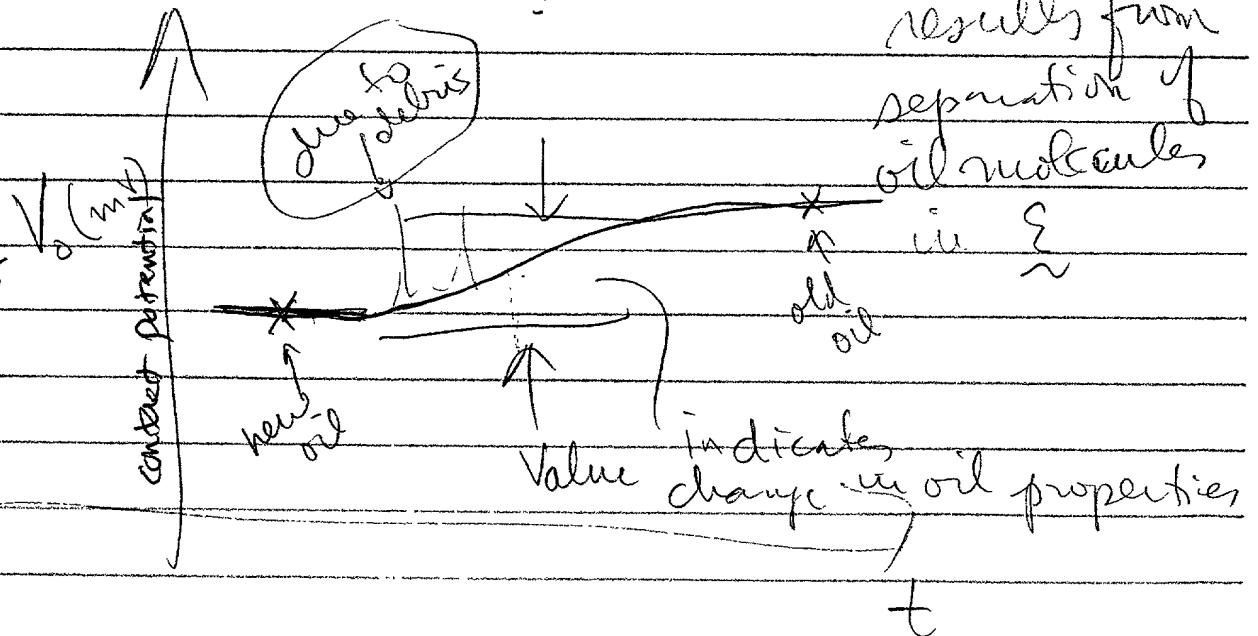 results from
separation of
oil molecules
in ε
due to
debris
V₀ (mV)
contact potential
new
oil
old
oil
Value indicates
change in oil properties
t